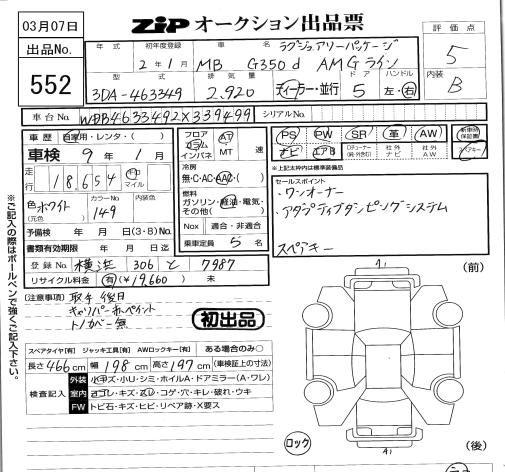 03月07日
ZiP オークション出品票
評価点
5
出品No.
552
年式
初年度登録
2年1月
車名
MB G350d AMGライン
ラグジュアリーパッケージ
型式
3DA-463349
排気量
2.920
ディーラー・並行
ドア
5
ハンドル
左・右
内装
B
車台No.
WDB4633492X339499
シリアルNo.
車歴
自家用・レンタ・( )
車検 9年1月
走行
18,654
km
マイル
色
(元色)
ホワイト
カラーNo
149
内装色
予備検 年 月 日(3・8)No.
書類有効期限 年 月 日迄
登録No. 横浜 306 と 7987
リサイクル料金 有(¥19,660) 未
フロア
コラム
インパネ
AT
MT
速
冷房
無・C・AC・AAC・( )
燃料
ガソリン・軽油・電気・
その他( )
Nox 適合・非適合
乗車定員 5 名
PS PW SR 革 AW
新車時保証書
ナビ エアB
社外ナビ
社外AW
スペアキー
*上記太枠内は標準装備品
セールスポイント
・ワンオーナー
・アダプティブダンピングシステム
スペアキー
(注意事項) 取手 後日
キャリパー赤ペイント
トノカバー無
初出品
スペアタイヤ[有] ジャッキ工具[有] AWロックキー[有] ある場合のみ○
長さ 466 cm 幅 198 cm 高さ 197 cm (車検証上の寸法)
検査記入
外装 小キズ・小U・シミ・ホイルA・ドアミラー(A・ワレ)
室内 ヨゴレ・キズ・スレ・コゲ・穴・キレ・破れ・ウキ
FW トビ石・キズ・ヒビ・リペア跡・X要ス
(前)
(後)
ロック
※ご記入の際はボールペンで強くご記入下さい。